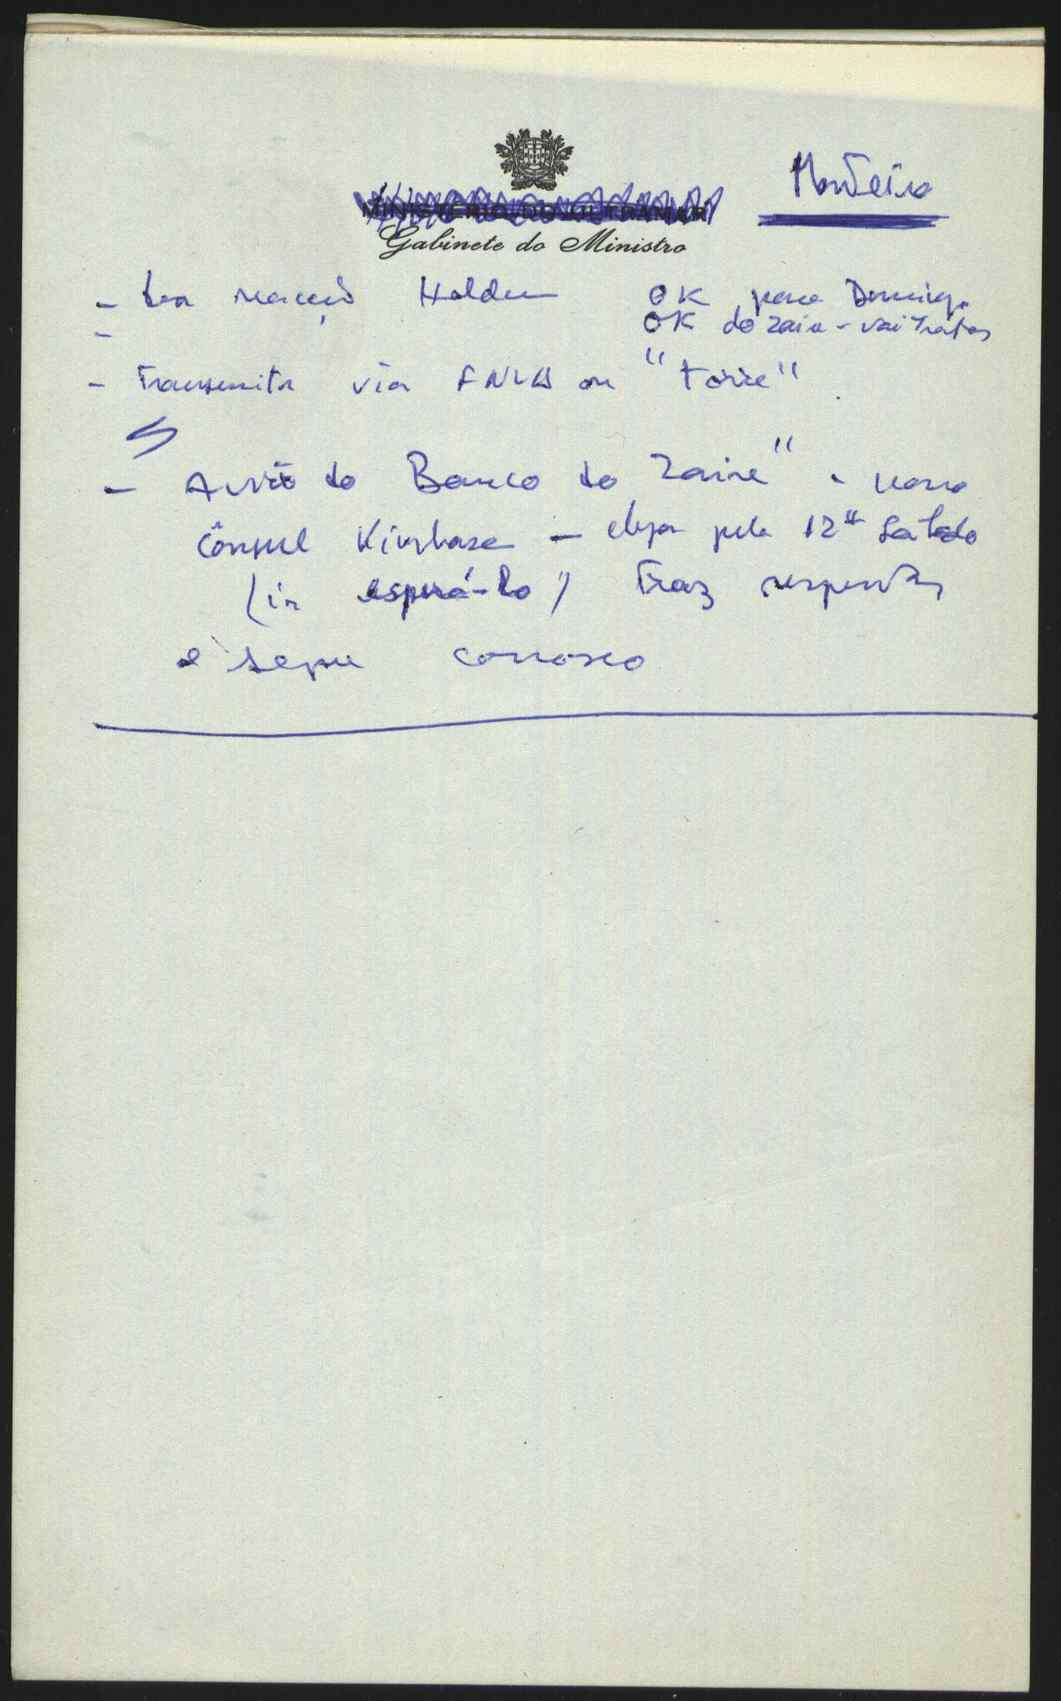 Monteiro
MINISTÉRIO DO ULTRAMAR
Gabinete do Ministro
- boa reacção Holden OK para Domingo
- OK do Zaire - vai tratar
- Transmitir via FNLA ou "Torre"
- Avião do Banco do Zaire" - nosso
Cônsul Kinshasa - chega pela 12H Sábado
(ir esperá-lo) Traz respostas
e segue connosco